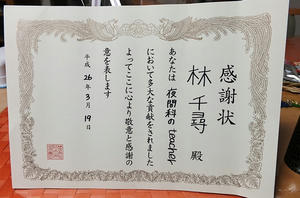 感謝状
林千尋 殿
あなたは夜間科のteacher
において多大な貢献をされました
よってここに心より敬意と感謝の
意を表します
平成26年3月19日